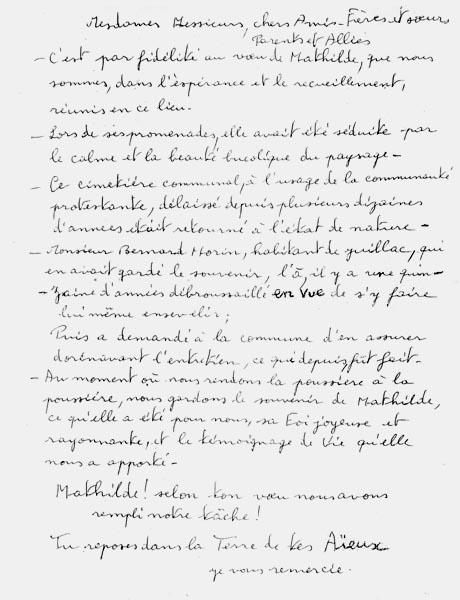 Mesdames Messieurs, chers Amis - Frères et sœurs
Parents et Alliés
- C'est par fidélité au vœu de Mathilde, que nous
sommes, dans l'èspérance et le recueillement,
réunis en ce lieu.
- Lors de ses promenades, elle avait été séduite par
le calme et la beauté bucolique du paysage -
- Ce cimetière communal, à l'usage de la communauté
protestante, délaissé depuis plusieurs dizaines
d'années était retourné à l'état de nature -
- Monsieur Bernard Morin, habitant de Juillac, qui
en avait gardé le souvenir, l'à, il y a une quin-
- zaine d'années débroussaillé en vue de s'y faire
lui même ensevelir ;
Puis a demandé à la commune d'en assurer
dorénavant l'entretien, ce qui depuis fût fait -
- Au moment où nous rendons la poussière à la
poussière, nous gardons le souvenir de Mathilde,
ce qu'elle a été pour nous, sa Foi joyeuse et
rayonnante, et le témoignage de Vie qu'elle
nous a apporté -
Mathilde ! selon ton vœu nous avons
rempli notre tâche !
Tu reposes dans la Terre de tes Aïeux
je vous remercie .